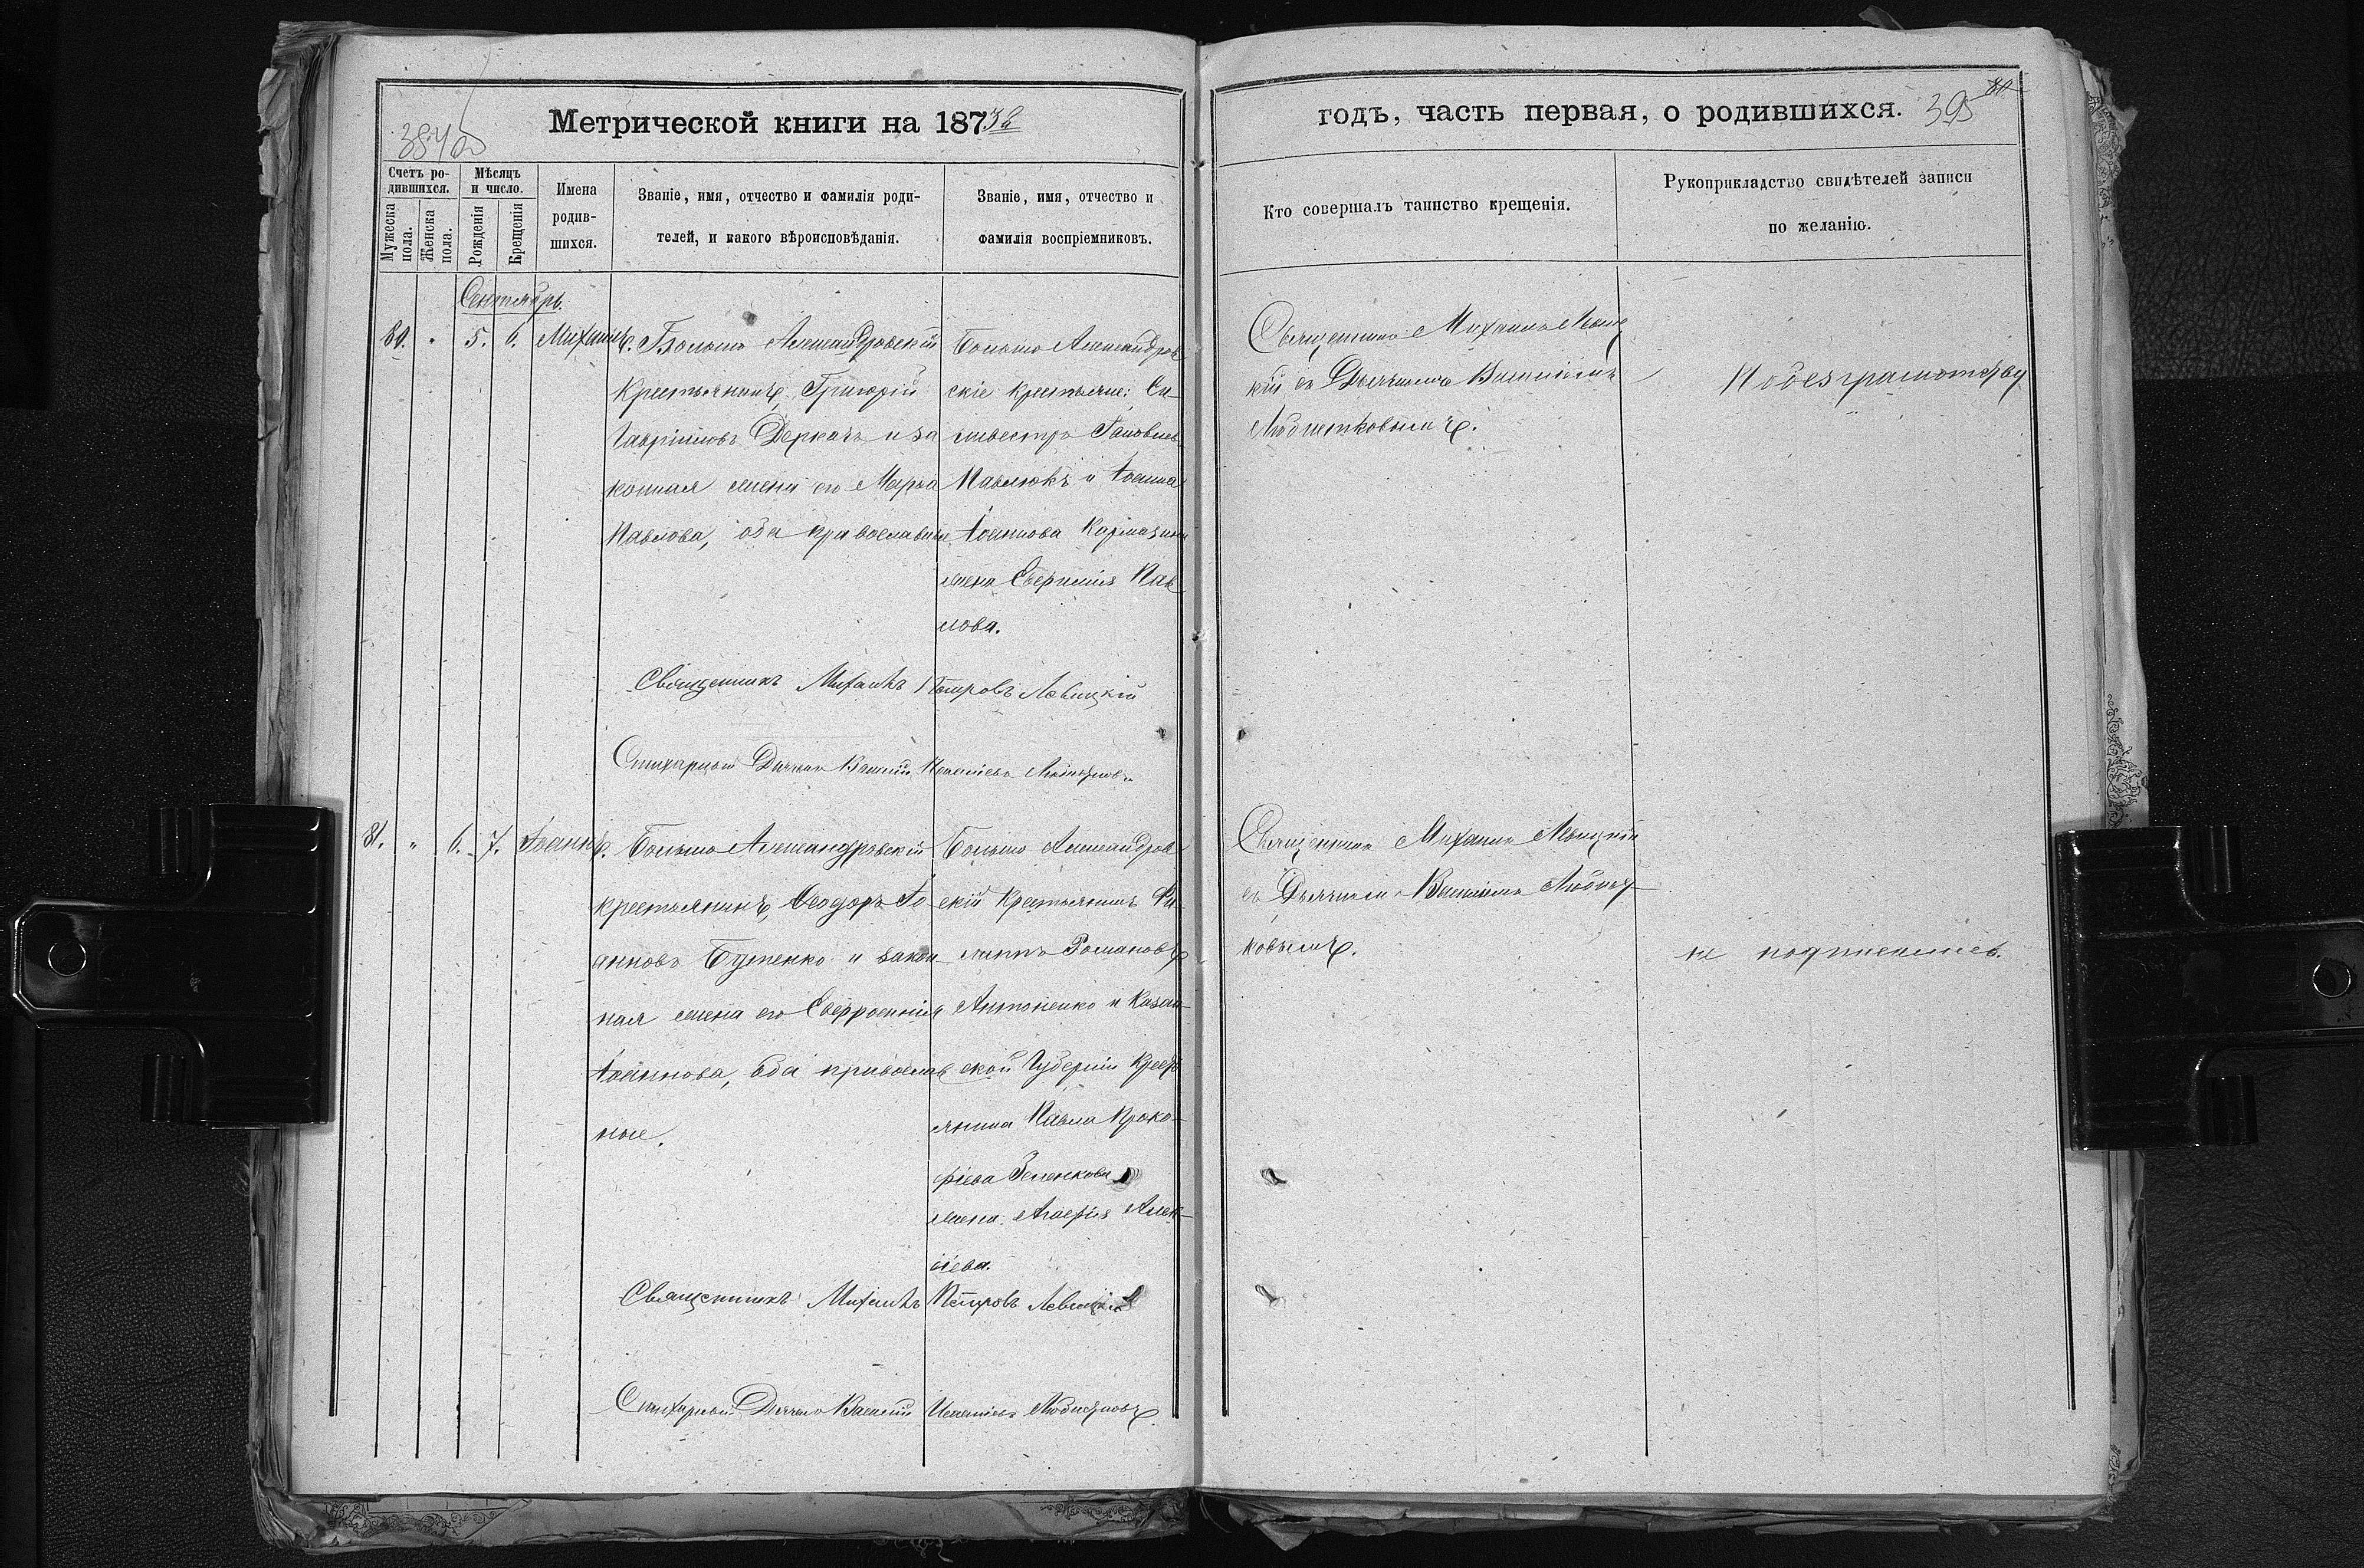 Метрической книги на 1873й
годъ, часть первая, о родившихся. 395
Счетъ ро-
дившихся.
Мужеска
пола.
Женска
пола.
Мѣсяцъ
и число.
Рожденія
Крещенія
Имена
родив-
шихся.
Званіе, имя, отчество и фамилія роди-
телей, и какого вѣроисповѣданія.
Званіе, имя, отчество и
фамилія воспріемниковъ.
Кто совершалъ таинство крещенія.
Рукоприкладство свидѣтелей записи
по желанію.
Сентябрь.
80. " 5. 6. Михаилъ.
Больше Александровскій
крестьянинъ, Григорій
Гавріиловъ Деркачъ и за
конная жена его Марѳа
Павлова, оба православные
Больше Александров
скіе крестьяне: Си-
львестръ Іаковлевъ
Павлюкъ и Іоанна
Іоаннова Кармазина
жена Евфимія Пав
лова.
Священникъ Михаилъ Левиц
кій съ Дьячкомъ Василіемъ
Любистковымъ.
По безграмотству
Священникъ Михаилъ Петровъ Левицкій
Стихарный Дьячекъ Василій
81. " 6. 7. Іоаннъ.
Больше Александровскій
крестьянинъ, Ѳеодоръ Іо
анновъ Бутенко и закон
ная жена его Евфросинія
Іоаннова, оба православ
ные.
Больше Александров
скій крестьянинъ Фи-
липпъ Романовъ
Антоненко и Казан-
ской Губерніи крестъ
янина Павла Проко-
фіева Зеленкова
жена: Агафія Алек-
сіева.
Священникъ Михаилъ Левицкій
съ Дьячкомъ Василіемъ Любист-
ковымъ.
не подписались.
Священникъ Михаилъ Петровъ Левицкій
Стихарный Дьячекъ Василій